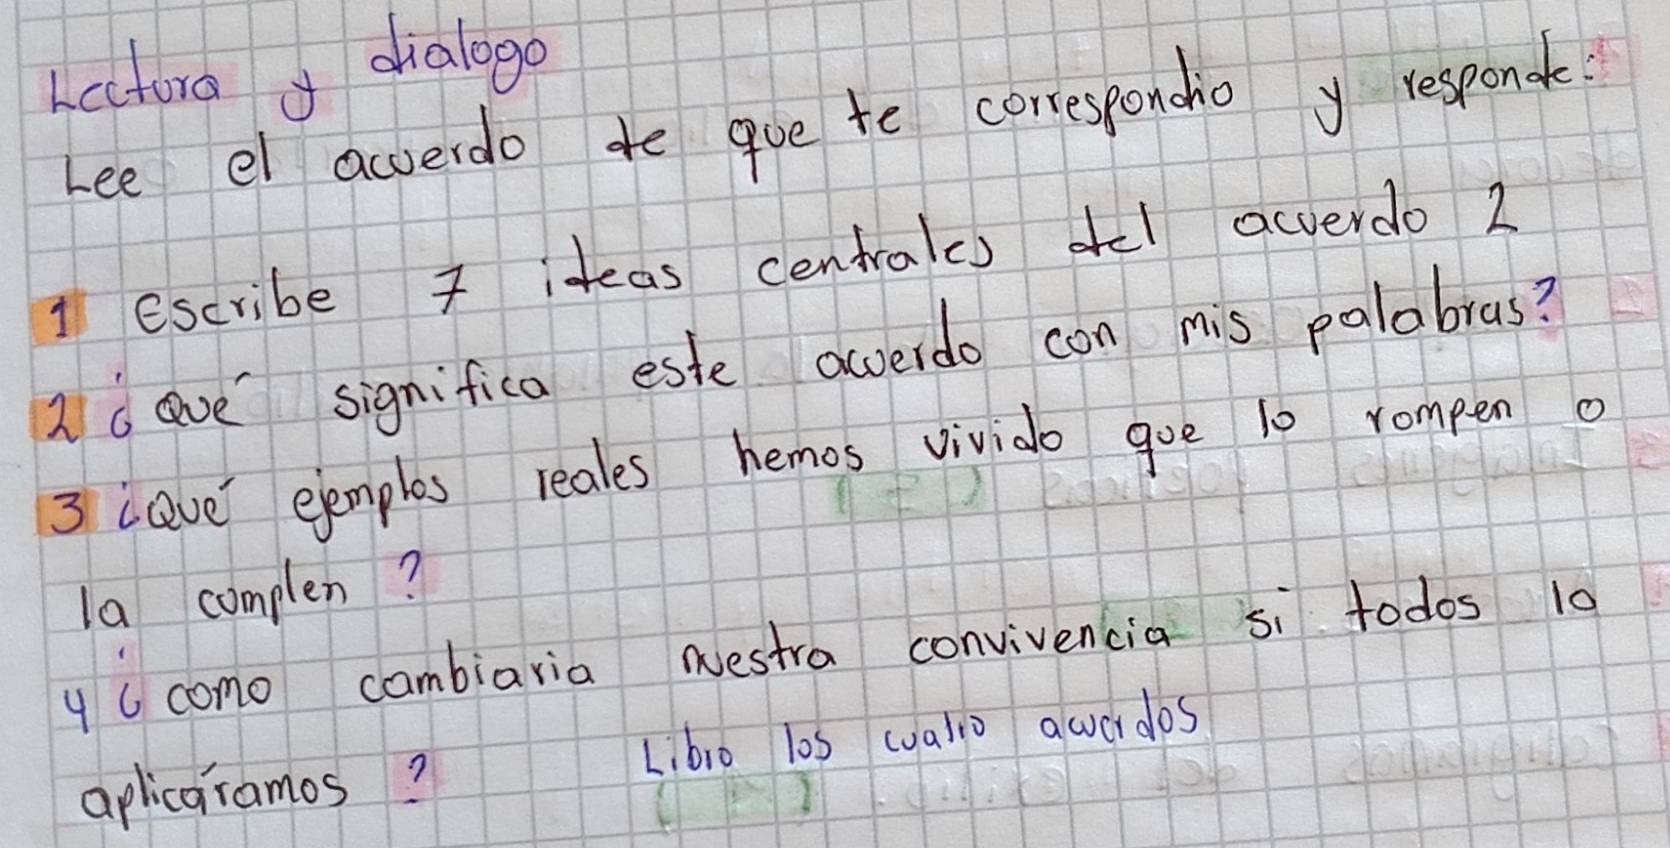 Lectura y dialogo
Lee el acuerdo de que te correspondio y responde:
1 Escribe 7 ideas centrales del acuerdo 2
2 ¿Qué significa este acuerdo con mis palabras?
3 ¿Qué ejemplos reales hemos vivido que lo rompen o
la complen?
4 ¿como cambiaria nuestra convivencia si todos lo
aplicáramos?
Libro los cuatro acuerdos